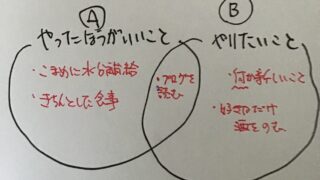 A
やったほうがいいこと
・こまめに水分補給
・きちんとした食事
・ブログを
読む
B
やりたいこと
・何か新しいこと
・好きなだけ
酒をのむ